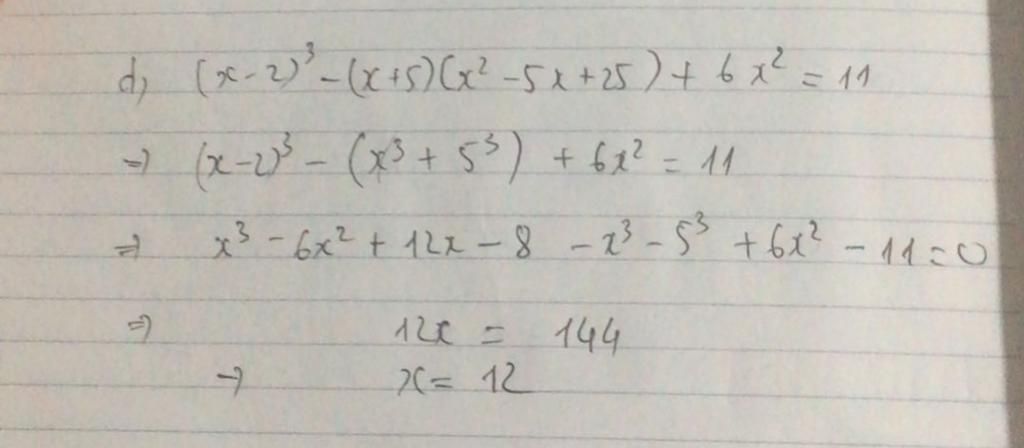 d, (x-2)³ - (x+5)(x² - 5x + 25) + 6x² = 11
⇒ (x-2)³ - (x³ + 5³) + 6x² = 11
⇒ x³ - 6x² + 12x - 8 - x³ - 5³ + 6x² - 11 = 0
⇒ 12x = 144
→ x = 12